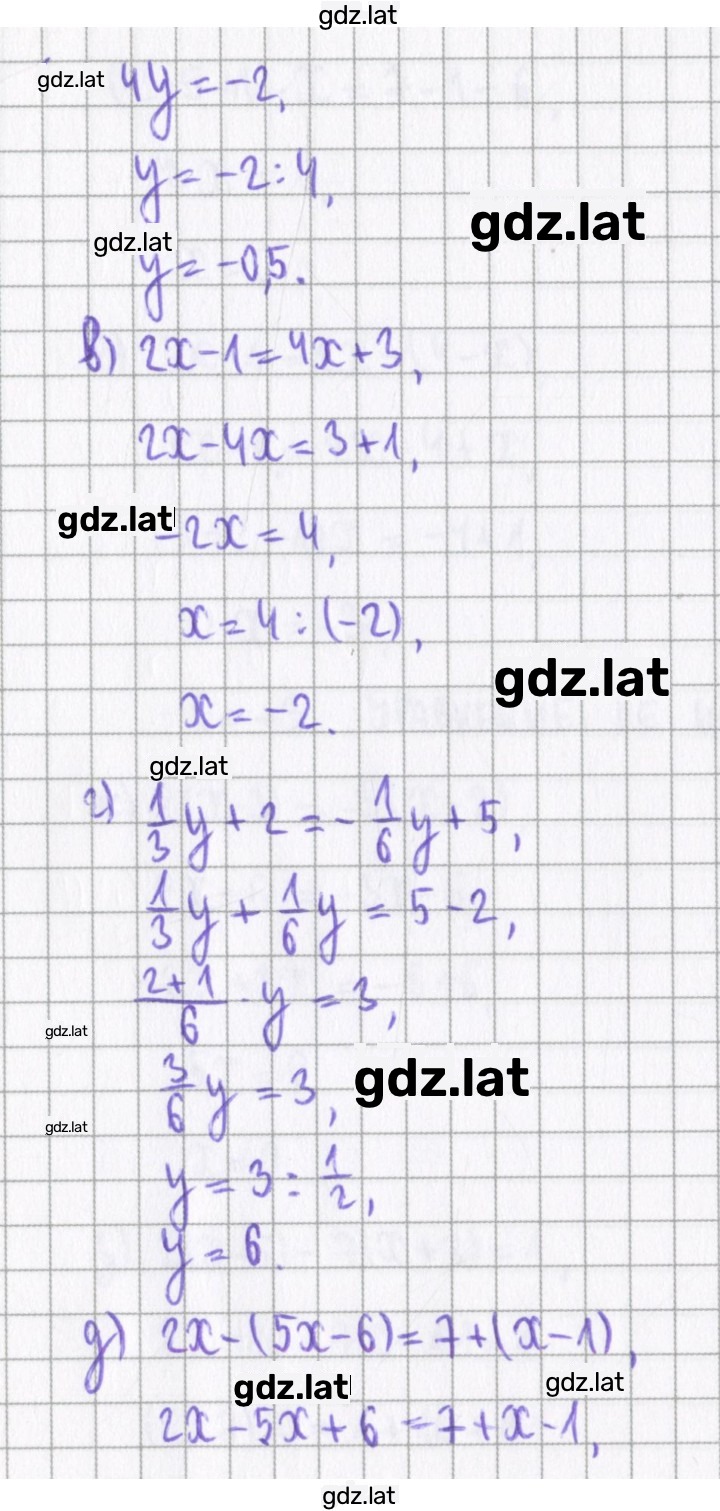 gdz.lat
gdz.lat 4y = -2,
y = -2 : 4,
gdz.lat
gdz.lat
y = -0,5.
в) 2x - 1 = 4x + 3,
2x - 4x = 3 + 1,
gdz.lat -2x = 4,
x = 4 : (-2),
gdz.lat
x = -2.
gdz.lat
г) 1/3 y + 2 = - 1/6 y + 5,
1/3 y + 1/6 y = 5 - 2,
(2+1)/6 · y = 3,
gdz.lat
3/6 y = 3,
gdz.lat
gdz.lat
y = 3 : 1/2,
y = 6.
д) 2x - (5x - 6) = 7 + (x - 1),
gdz.lat gdz.lat
2x - 5x + 6 = 7 + x - 1,
gdz.lat